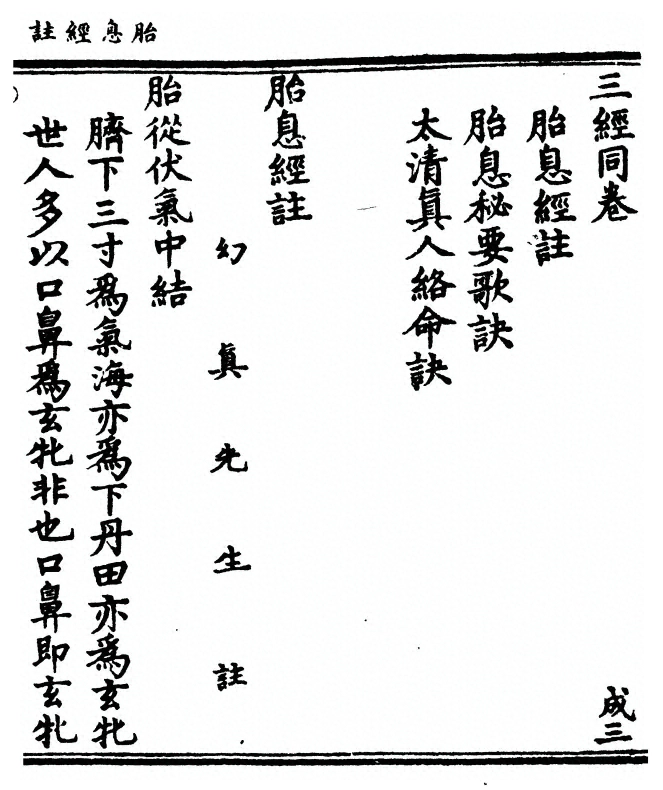 胎息經註
三經同卷 成三
胎息經註
胎息秘要歌訣
太清真人絡命訣
胎息經註
幻真先生註
胎從伏氣中結
臍下三寸爲氣海亦爲下丹田亦爲玄牝
世人多以口鼻爲玄牝非也口鼻即玄牝